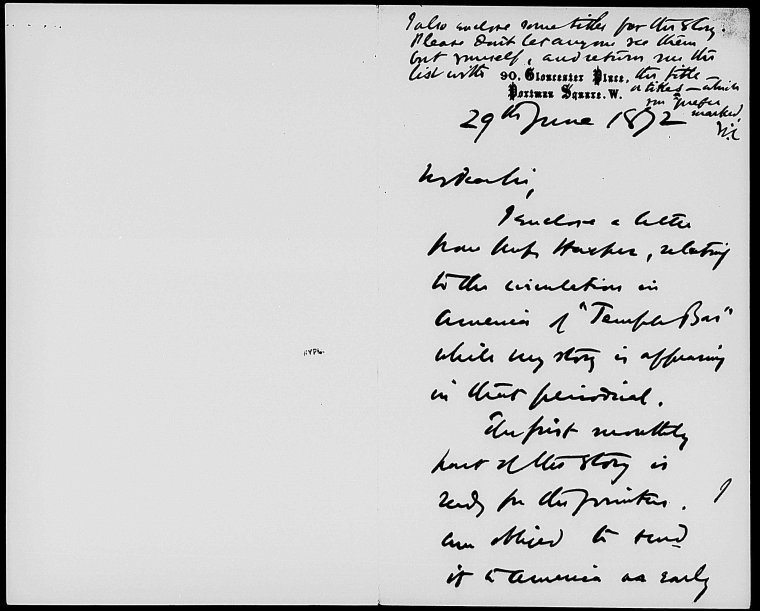 I also enclose some titles for the story.
Please don't let anyone see them
but yourself, and return me the
list with the title –
or titles – which
you prefer
marked,
WC
90, Gloucester Place,
Portman Square. W.
29th June 1872
My dear Sir,
I enclose a letter
from Messrs Harper, relating
to the circulation in
America of "Temple Bar"
while my story is appearing
in that periodical.
The first monthly
part of the story is
ready for the printers. I
am obliged to send
it to America as early